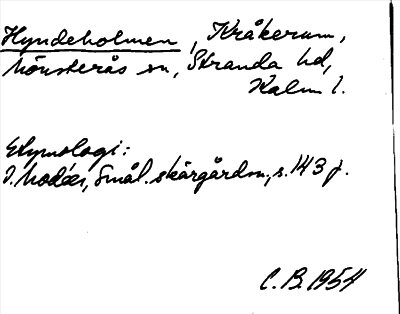 Hyndeholmen, Kråkerum,
Mönsterås sn, Stranda hd,
Kalm l.
Etymologi:
I. Modéer, Smål. skärgårdsn, s. 143 f.
C.B. 1954